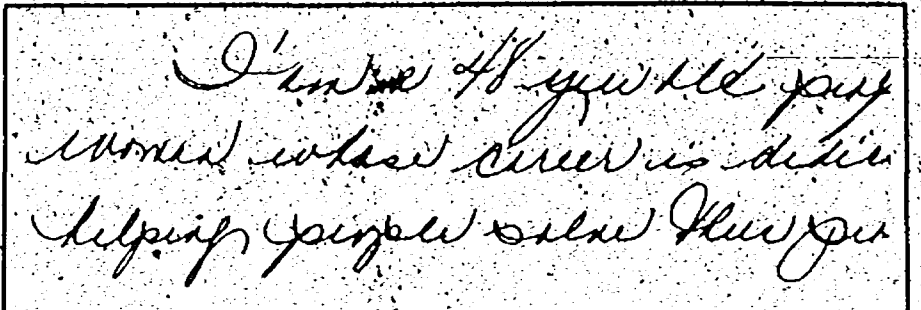 I'm a 48 year old
woman whose career is
helping people solve their